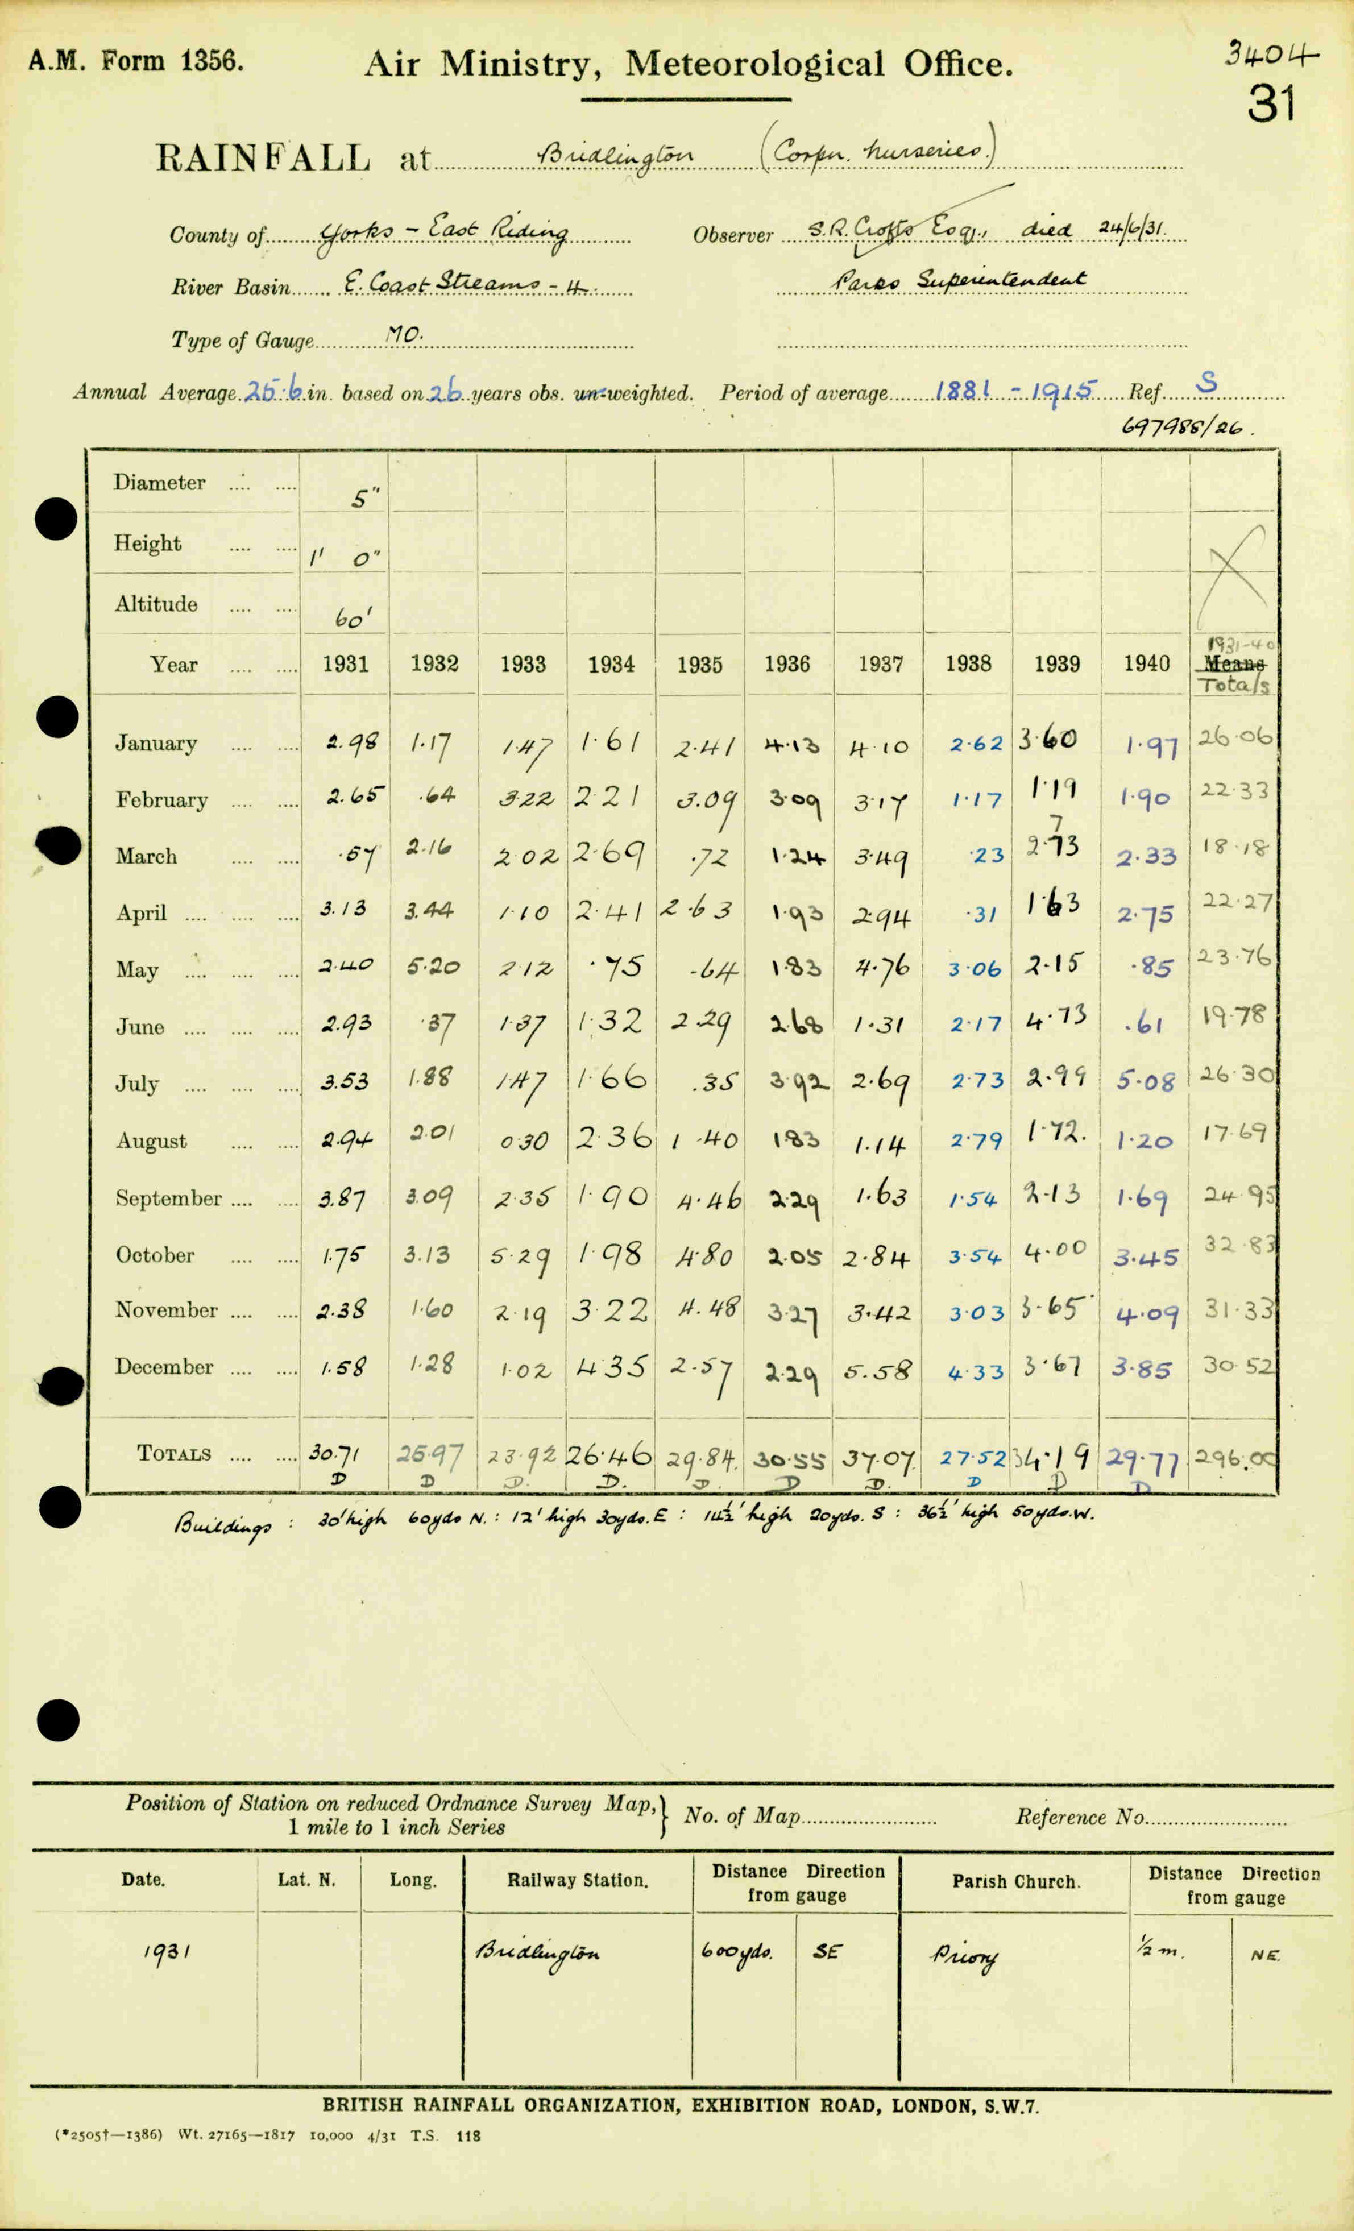 A.M. Form 1356. Air Ministry, Meteorological Office. 3404
31
RAINFALL at Bridlington (Corpn. Nurseries.)
County of Yorks – East Riding Observer S.R. Crofts Esq., died 24/6/31.
River Basin E. Coast Streams – 4. Parks Superintendent
Type of Gauge MO.
Annual Average 25.6 in. based on 26 years obs. un-weighted. Period of average 1881 - 1915 Ref. S
697988/26.
Diameter .... .... 5"
Height .... .... 1' 0"
Altitude .... .... 60'
1931-40
Year .... .... 1931 1932 1933 1934 1935 1936 1937 1938 1939 1940 Means
Totals
January .... .... 2.98 1.17 1.47 1.61 2.41 4.13 4.10 2.62 3.60 1.97 26.06
February .... .... 2.65 .64 3.22 2.21 3.09 3.09 3.17 1.17 1.19 1.90 22.33
7
March .... .... .57 2.16 2.02 2.69 .72 1.24 3.49 .23 2.73 2.33 18.18
April .... .... .... 3.13 3.44 1.10 2.41 2.63 1.93 2.94 .31 1.63 2.75 22.27
May .... .... .... 2.40 5.20 2.12 .75 .64 1.83 4.76 3.06 2.15 .85 23.76
June .... .... .... 2.93 .37 1.37 1.32 2.29 2.68 1.31 2.17 4.73 .61 19.78
July .... .... .... 3.53 1.88 1.47 1.66 .35 3.92 2.69 2.73 2.99 5.08 26.30
August .... .... 2.94 2.01 0.30 2.36 1.40 1.83 1.14 2.79 1.72. 1.20 17.69
September .... .... 3.87 3.09 2.35 1.90 4.46 2.29 1.63 1.54 2.13 1.69 24.95
October .... .... 1.75 3.13 5.29 1.98 4.80 2.05 2.84 3.54 4.00 3.45 32.83
November .... .... 2.38 1.60 2.19 3.22 4.48 3.27 3.42 3.03 3.65 4.09 31.33
December .... .... 1.58 1.28 1.02 4.35 2.57 2.29 5.58 4.33 3.67 3.85 30.52
TOTALS .... .... 30.71 25.97 23.92 26.46 29.84. 30.55 37.07. 27.52 34.19 29.77 296.00
D D D. D. D. D D. D D D
Buildings : 30' high 60yds N. : 12' high 30yds. E : 14½' high 20yds. S : 36½' high 50yds. W.
Position of Station on reduced Ordnance Survey Map, } No. of Map Reference No.
1 mile to 1 inch Series
Date. Lat. N. Long. Railway Station. Distance Direction from gauge Parish Church. Distance Direction from gauge
1931 Bridlington 600yds. SE Priory ½ m. NE.
BRITISH RAINFALL ORGANIZATION, EXHIBITION ROAD, LONDON, S.W.7.
(*2505†—1386) Wt. 27165—1817 10,000 4/31 T.S. 118